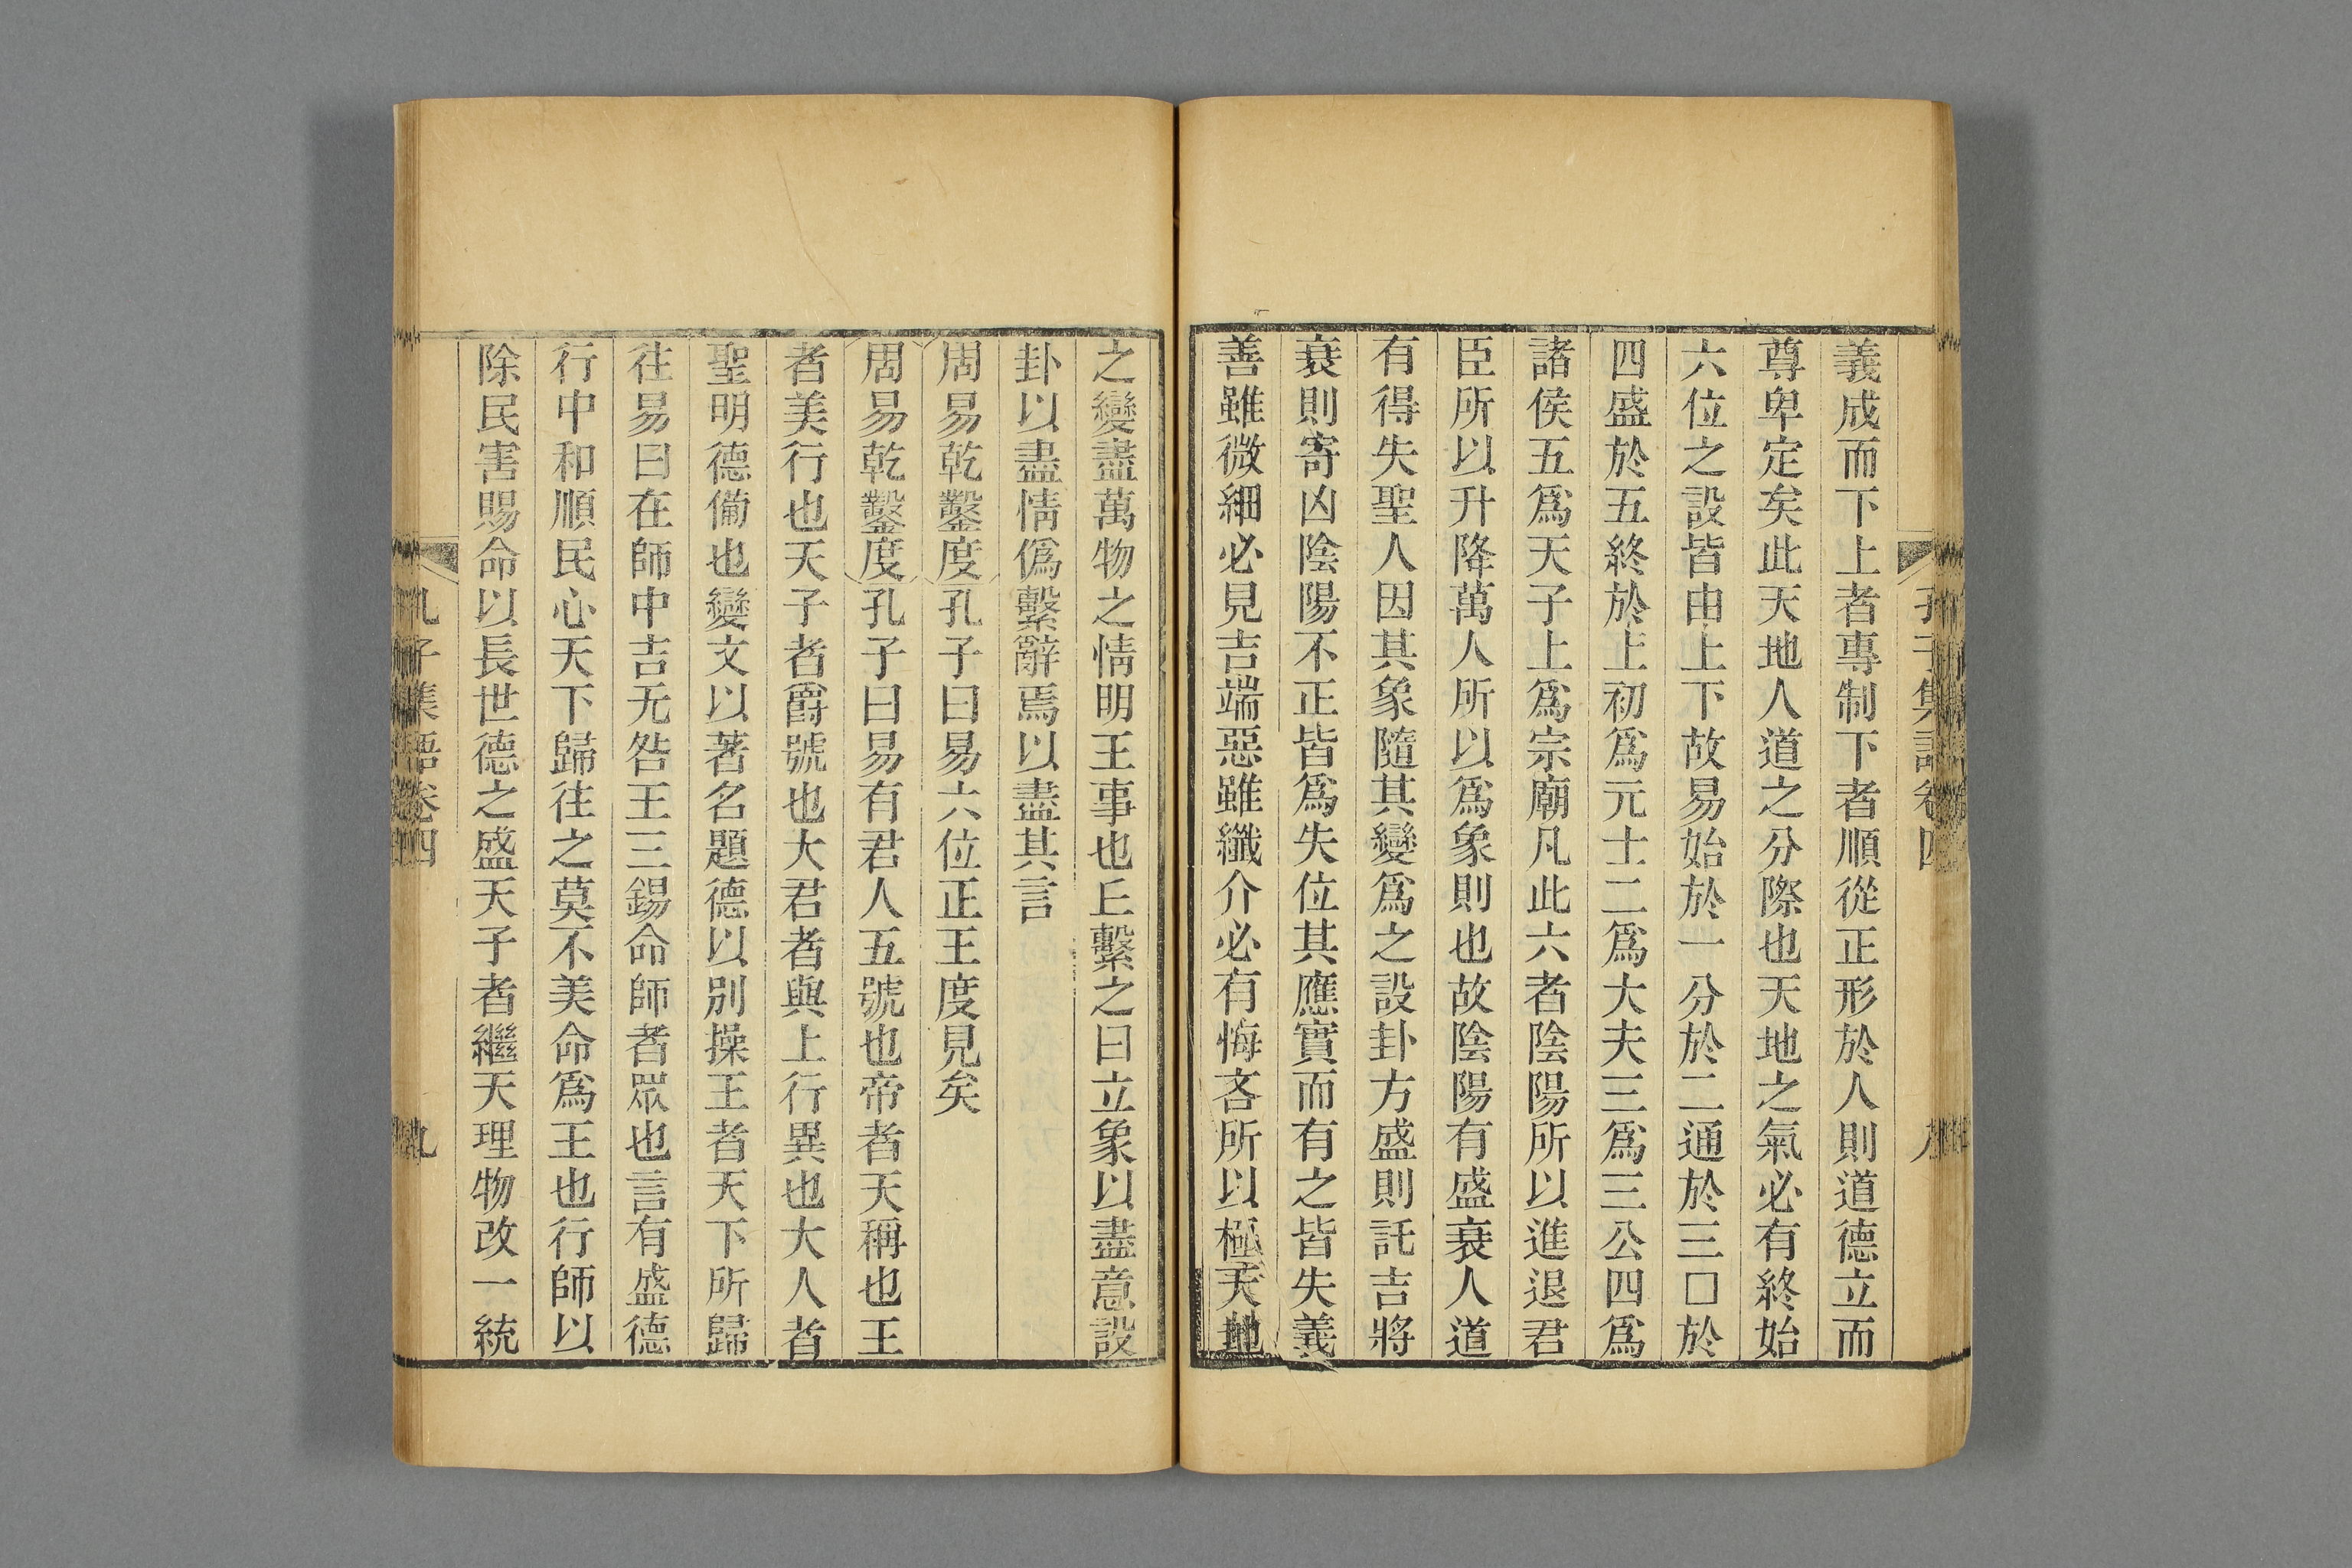 義成而下上者專制下者順從正形於人則道德立而
尊卑定矣此天地人道之分際也天地之氣必有終始
六位之設皆由上下故易始於一分於二通於三□於
四盛於五終於上初爲元士二爲大夫三爲三公四爲
諸侯五爲天子上爲宗廟凡此六者陰陽所以進退君
臣所以升降萬人所以爲象則也故陰陽有盛衰人道
有得失聖人因其象隨其變爲之設卦方盛則託吉將
衰則寄凶陰陽不正皆爲失位其應實而有之皆失義
善雖微細必見吉端惡雖纖介必有悔吝所以極天地
之變盡萬物之情明王事也丘繫之曰立象以盡意設
卦以盡情僞繫辭焉以盡其言
周易乾鑿度孔子曰易六位正王度見矣
周易乾鑿度孔子曰易有君人五號也帝者天稱也王
者美行也天子者爵號也大君者與上行異也大人者
聖明德僃也變文以著名題德以別操王者天下所歸
往易曰在師中吉无咎王三錫命師者眾也言有盛德
行中和順民心天下歸往之莫不美命爲王也行師以
除民害賜命以長世德之盛天子者繼天理物改一統
孔子集語卷四
九